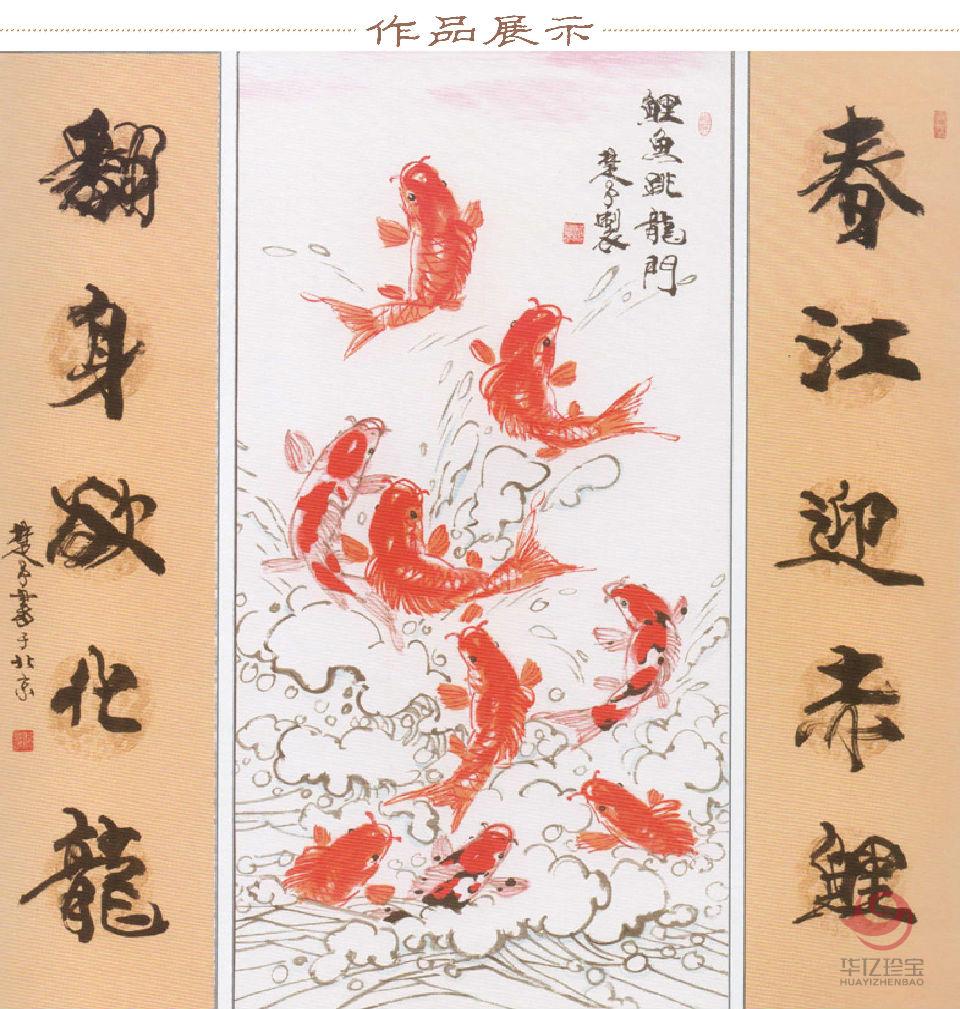 作品展示
春江迎赤鲤
鯉魚跳龍門
楚子製
翻身欲化龍
楚子書于北京
华亿珍宝
HUAYIZHENBAO